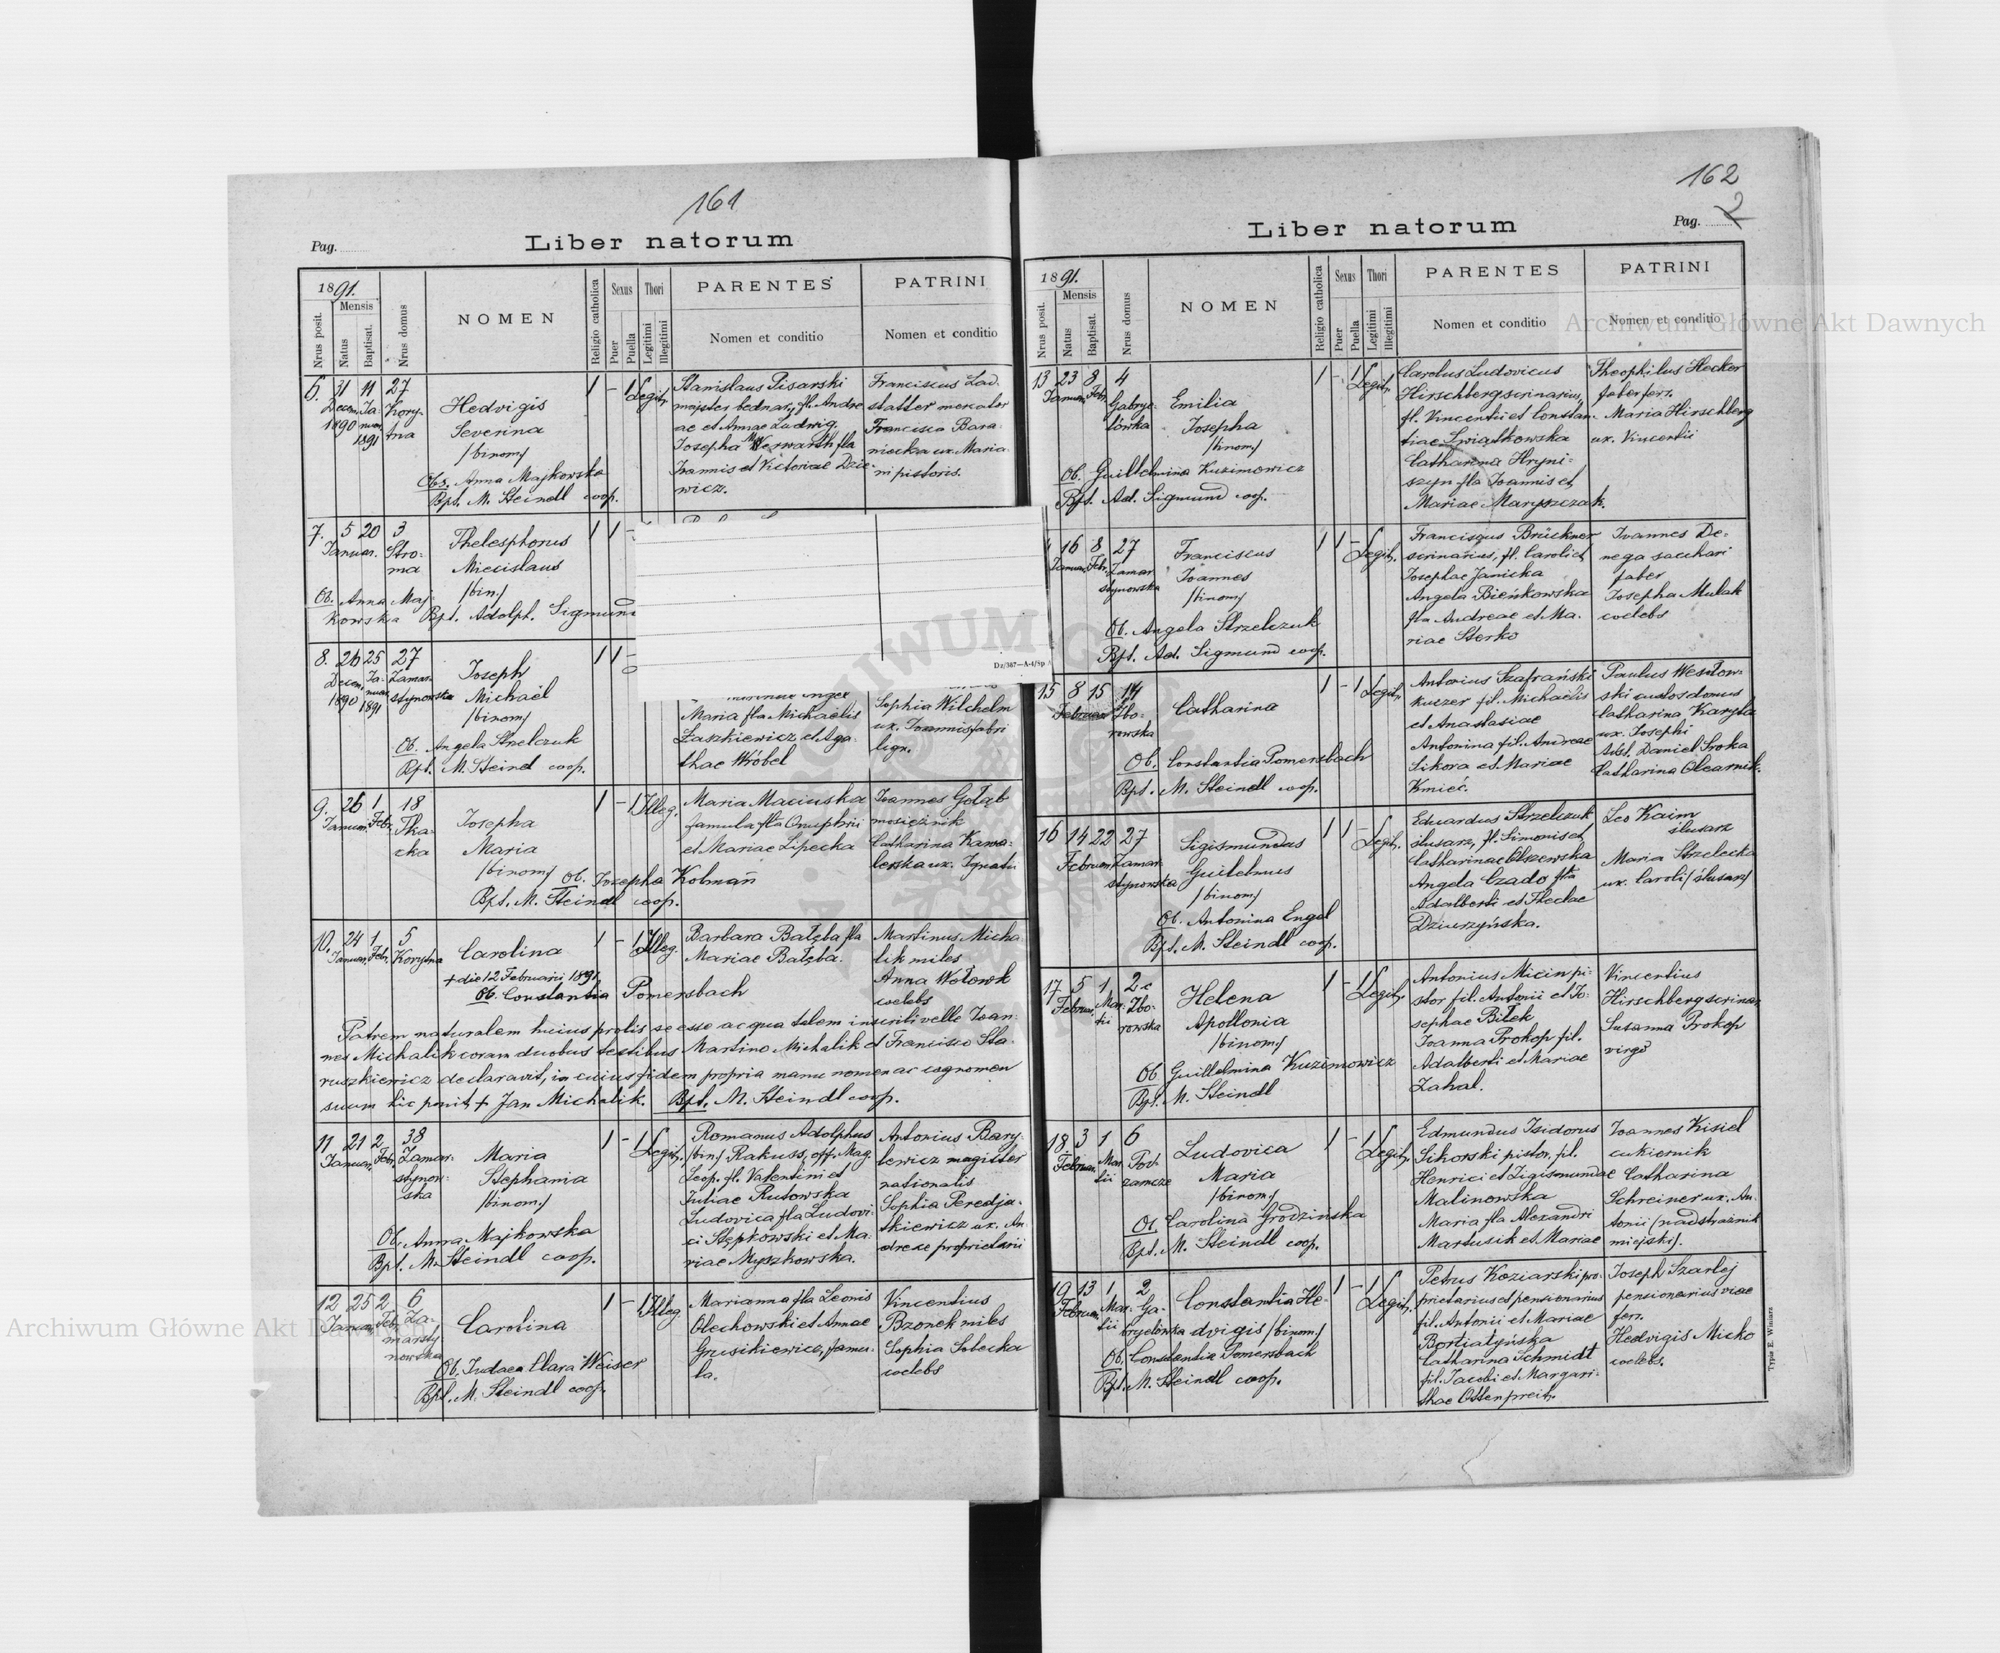 161
Pag.
Liber natorum
1891.
Nrus posit.
Mensis
Natus
Baptisat.
Nrus domus
NOMEN
Religio catholica
Sexus
Puer
Puella
Thori
Legitimi
Illegitimi
PARENTES
Nomen et conditio
PATRINI
Nomen et conditio
6. 31 11 27
Decem. Ja- Kory-
1890 nuar. tna
1891
Hedvigis
Severina
/binom/
Obs. Anna Majkowska
Bpt. M. Steindl coop.
1 - 1 Legit.
Stanislaus Pisarski
majster bednar., fl. Andre
ae et Annae Ludwig.
Josepha fla
Joannis et Victoriae Dzie-
wicz.
Franciscus Lad-
statter mercator
Francisca Bara-
niecka ux. Maria-
ni pistoris.
7. 5 20 3
Januar. Stro-
ma
Thelesphorus
Miecislaus
/bin./
Ob. Anna Maj-
kowska Bpt. Adolph. Sigmund
1 1 -
8. 26 25 27
Decem. Ja- Zamar-
1890 nuar. stynowska
1891
Joseph
Michaël
/binom/
Ob. Angela Strelczuk
Bpt. M. Steindl coop.
1 1 -
Maria fla Michaëlis
Łaszkiewicz et Aga-
thae Wróbel
Sophia Wilchelm
ux. Joannis fabri
lign.
Dz/387—A-4/Sp
9. 26 1 18
Januar. Febr. Tka-
cka
Josepha
Maria
/binom/
Ob. Josepha Kolmañ
Bpt. M. Steindl coop.
1 - 1 Illeg.
Maria Maciuska
famula fla Onuphrii
et Mariae Lipecka
Joannes Gołąb
mosiężnik
Catharina Kawa-
lerska ux. Ignatii
10. 24 1 5
Januar. Febr. Korytna
Carolina
+ die 12 Februarii 1891.
Ob. Constantia Pomersbach
1 - 1 Illeg.
Barbara Bałęba fla
Mariae Bałęba.
Martinus Micha-
lik miles
Anna Wołowk
coelebs
Patrem naturalem huius prolis se esse ac qua talem inscribi velle Joan-
nes Michalik coram duobus testibus Martino Michalik et Francisco Sta-
ruszkiewicz declaravit, in cuius fidem propria manu nomen ac cognomen
suum hic ponit + Jan Michalik. Bpt. M. Steindl coop.
11. 21 2 38
Januar. Febr. Zamar-
stynow-
ska
Maria
Stephania
/binom./
Ob. Anna Majkowska
Bpt. M. Steindl coop.
1 - 1 Legit.
Romanus Adolphus
/bin/ Rakuss, off. Mag.
Leop. fl. Valentini et
Juliae Rutowska
Ludovica fla Ludovi-
ci Stępkowski et Ma-
riae Myszkowska.
Antonius Bary-
lewicz magister
nationalis
Sophia Peredja-
tkiewicz ux. An-
dreae proprietarii
12. 25 2 6
Januar. Febr. Za-
marsty
nowska
Carolina
Ob. Judaea Clara Weiser
Bpt. M. Steindl coop.
1 - 1 Illeg.
Marianna fla Leonis
Olechowski et Annae
Grusikiewicz, famu-
la.
Vincentius
Bzonek miles
Sophia Sobecka
coelebs
162
Pag. 2
Liber natorum
1891.
Nrus posit.
Mensis
Natus
Baptisat.
Nrus domus
NOMEN
Religio catholica
Sexus
Puer
Puella
Thori
Legitimi
Illegitimi
PARENTES
Nomen et conditio
PATRINI
Nomen et conditio
13 23 8 4
Januar. Febr. Gabrye-
lówka
Emilia
Josepha
/binom/
Ob. Guillelmina Kuzimowicz
Bpt. Ad. Sigmund coop.
1 - 1 Legit.
Carolus Ludovicus
Hirschberg scrinarius,
fl. Vincentii et Constan-
tiae Swiatkowska
Catharina Hryni-
szyn fla Joannis et
Mariae Maryszczak.
Theophilus Hecker
faber ferr.
Maria Hirschberg
ux. Vincentii
16 8 27
Januar. Febr. Zamar
stynowska
Franciscus
Joannes
/binom/
Ob. Angela Strzelczuk
Bpt. Ad. Sigmund coop.
1 1 - Legit.
Franciscus Brückner
scrinarius, fl. Caroli et
Josephae Janicka
Angela Bieńkowska
fla Andreae et Ma-
riae Sterko
Joannes De-
nega sacchari
faber
Josepha Mulak
coelebs
15 8 15 14
Februar. Zbo-
rowska
Catharina
Ob. Constantia Pomersbach
Bpt. M. Steindl coop.
1 - 1 Legit.
Antonius Szafrański
kuczer fil. Michaëlis
et Anastasiae
Antonina fil. Andreae
Sikora et Mariae
Kmieć.
Paulus Wesołow-
ski custos domus
Catharina Karyla
ux. Josephi
Adst. Daniel Sroka
Catharina Olearnik.
16 14 22 27
Februar. Zamar-
stynowska
Sigismundus
Guilelmus
/binom/
Ob. Antonina Engel
Bpt. M. Steindl coop.
1 1 - Legit.
Eduardus Strzelczuk
ślusarz, fl. Simonis et
Catharinae Olszewska
Angela Czado fla
Adalberti et Theclae
Dziurzyńska.
Leo Kaim
ślusarz
Maria Strzelecka
ux. Caroli /ślusarz/
17 5 1 2c
Februar. Mar- Zbo-
tii rowska
Helena
Apollonia
/binom./
Ob. Guillelmina Kuzimowicz
Bpt. M. Steindl
1 - 1 Legit.
Antonius Micin pi-
stor fil. Antonii et Jo-
sephae Bilek
Joanna Prokop fil.
Adalberti et Mariae
Zahal.
Vincentius
Hirschberg scrinar.
Susanna Prokop
virgo
18 3 1 6
Februar. Mar- Pod-
tii zamcze
Ludovica
Maria
/binom/
Ob. Carolina Grodzińska
Bpt. M. Steindl coop.
1 - 1 Legit.
Edmundus Isidorus
Sikorski pistor, fil.
Henrici et Sigismundae
Malinowska
Maria fla Alexandri
Martusik et Mariae
Joannes Kisiel
cukiernik
Catharina
Schreiner ux. An-
tonii /nadstrażnik
miejski/.
19 13 1 2
Februar. Mar- Ga-
tii bryelówka
Constantia He-
dvigis /binom/
Ob. Constantia Pomersbach
Bpt. M. Steindl coop.
1 - 1 Legit.
Petrus Koziarski pro-
prietarius et pensionarius
fil. Antonii et Mariae
Bortiatyńska
Catharina Schmidt
fil. Jacobi et Margari-
thae Ottenpreit.
Joseph Szarlej
pensionarius viae
ferr.
Hedvigis Micko
coelebs.
Typis E. Winiarz
Archiwum Główne Akt Dawnych
Archiwum Główne Akt Dawnych